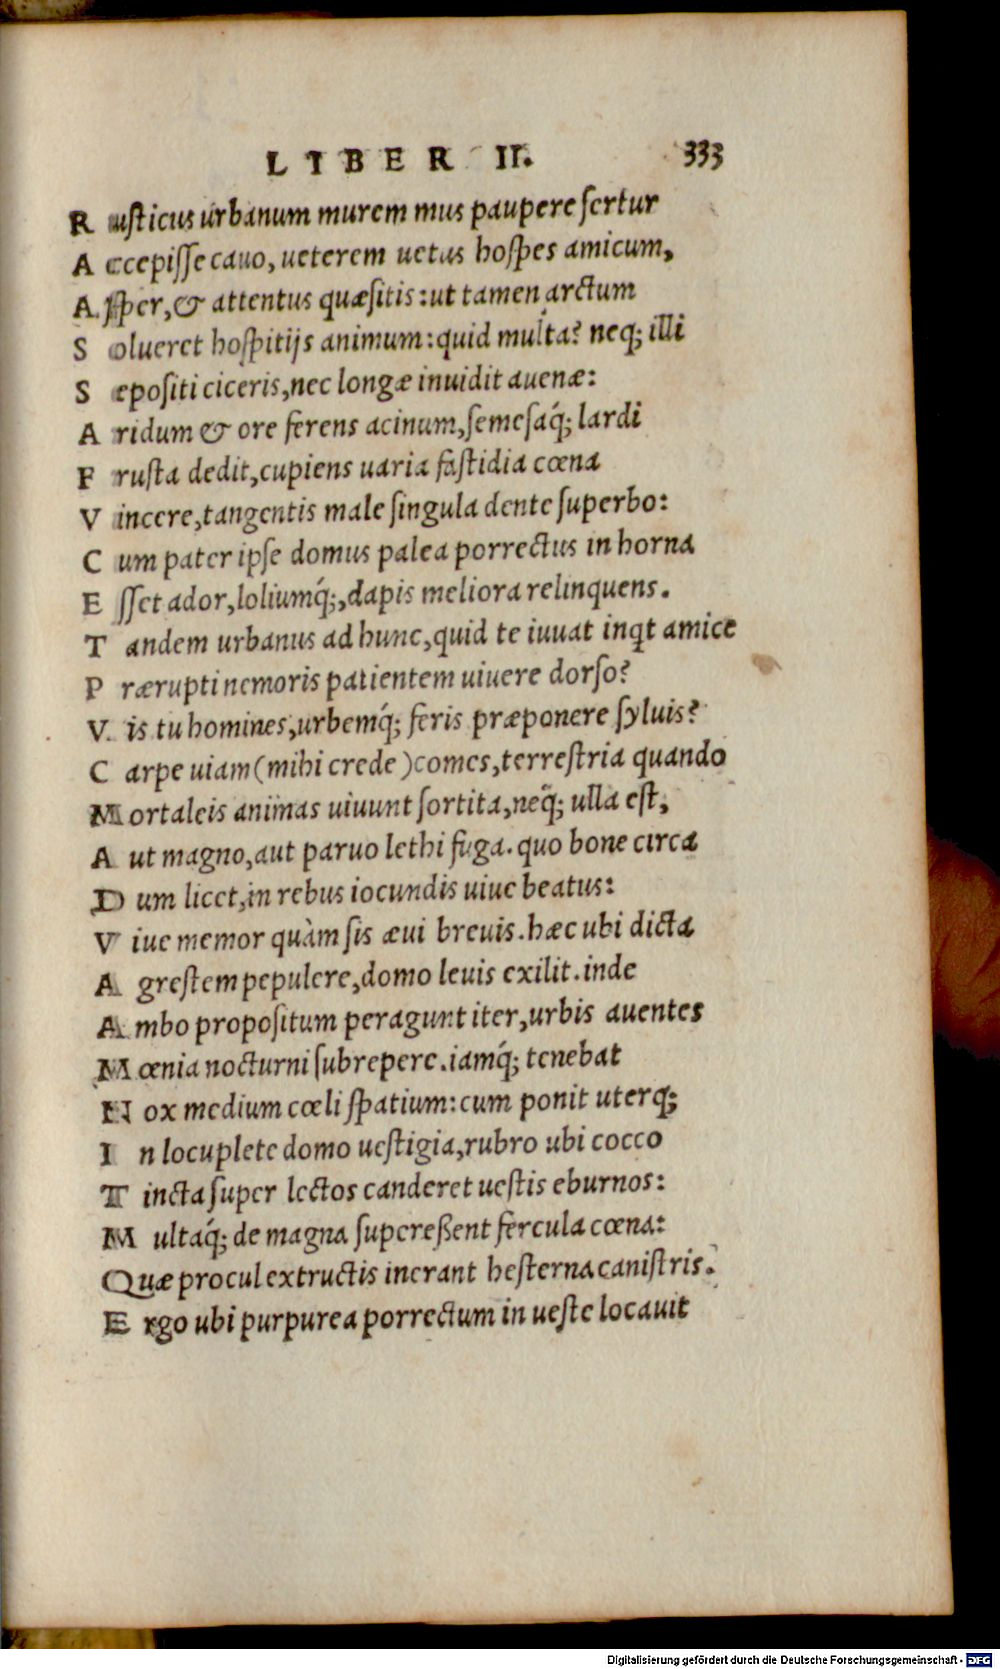 LIBER II. 333
R usticus urbanum murem mus paupere fertur
A ccepisse cauo, ueterem uetus hospes amicum,
A sper, & attentus quæsitis: ut tamen arctum
S olueret hospitijs animum: quid multa? neq; illi
S epositi ciceris, nec longæ inuidit auenæ:
A ridum & ore ferens acinum, semesaq́; lardi
F rusta dedit, cupiens uaria fastidia cœna
V incere, tangentis male singula dente superbo:
C um pater ipse domus palea porrectus in horna
E sset ador, loliumq́;, dapis meliora relinquens.
T andem urbanus ad hunc, quid te iuuat inqt amice
P rærupti nemoris patientem uiuere dorso?
V is tu homines, urbemq́; feris præponere syluis?
C arpe uiam (mihi crede) comes, terrestria quando
M ortaleis animas uiuunt sortita, neq́; ulla est,
A ut magno, aut paruo lethi fuga. quo bone circa
D um licet, in rebus iocundis uiue beatus:
V iue memor quàm sis æui breuis. hæc ubi dicta
A grestem pepulere, domo leuis exilit. inde
A mbo propositum peragunt iter, urbis auentes
M œnia nocturni subrepere. iamq́; tenebat
N ox medium cœli spatium: cum ponit uterq;
I n locuplete domo uestigia, rubro ubi cocco
T incta super lectos canderet uestis eburnos:
M ultaq́; de magna superessent fercula cœna:
Quæ procul extructis inerant hesterna canistris.
E rgo ubi purpurea porrectum in ueste locauit
Digitalisierung gefördert durch die Deutsche Forschungsgemeinschaft - DFG